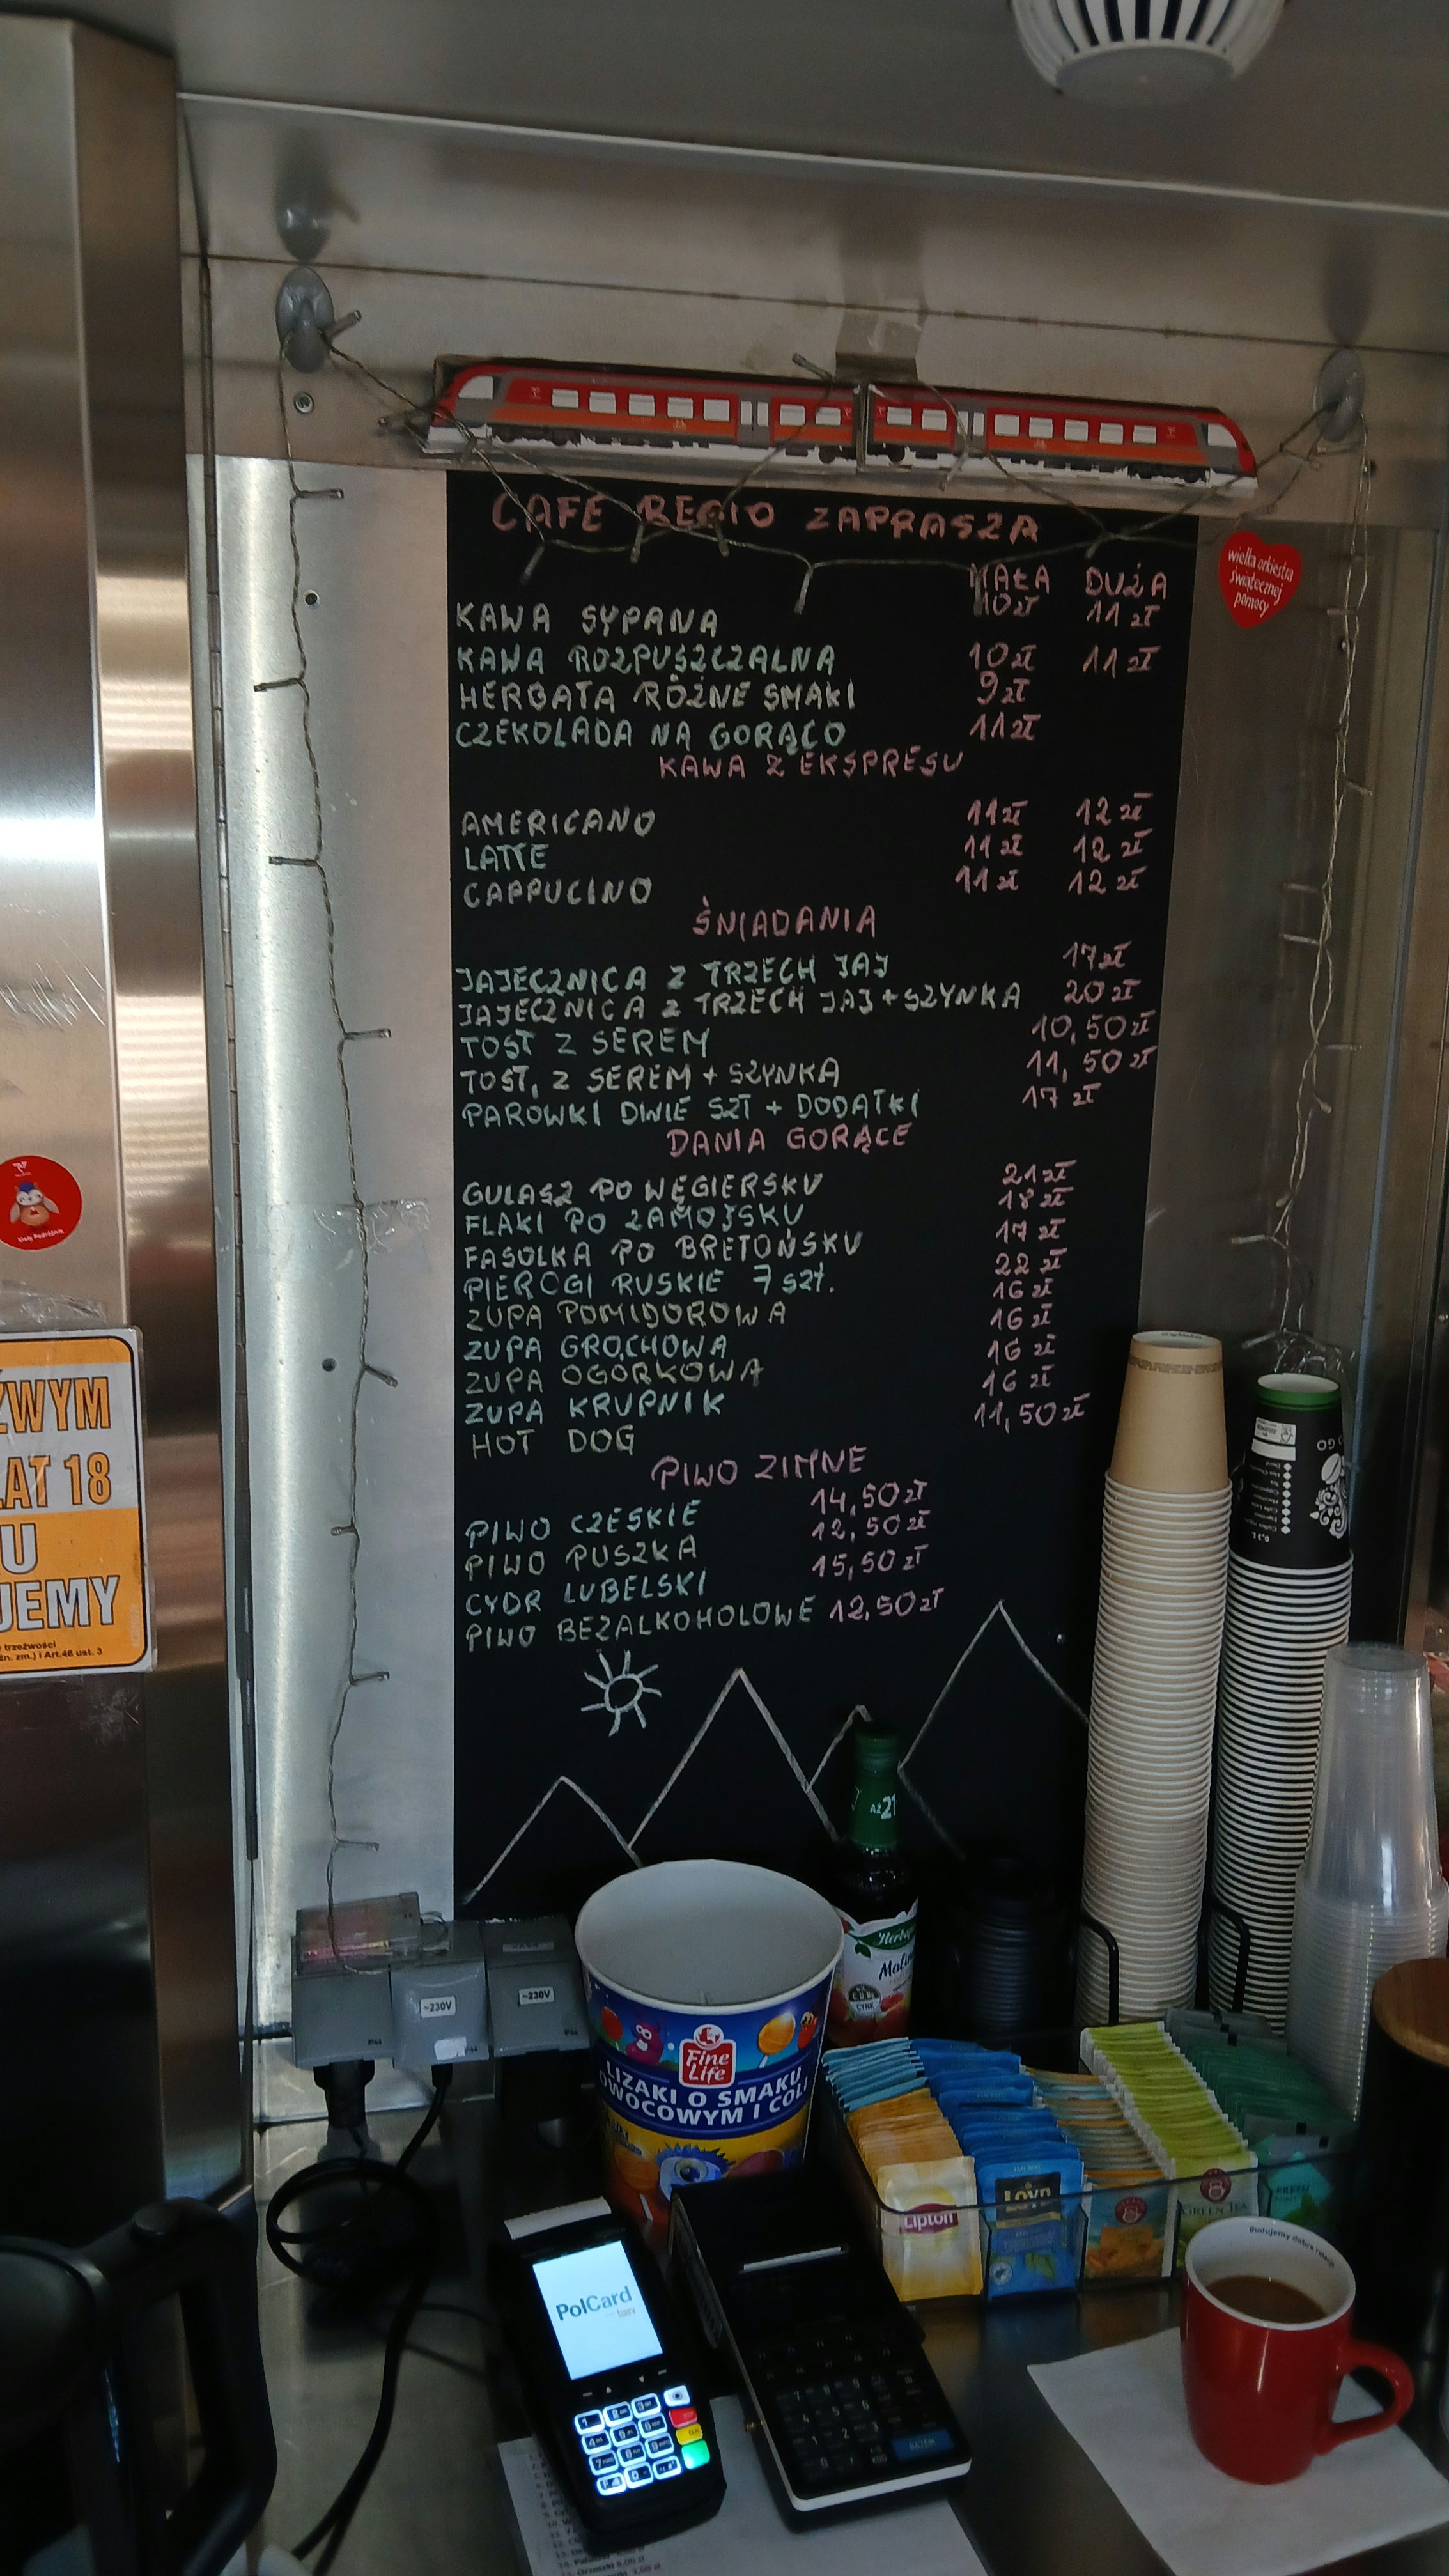 CAFE REGIO ZAPRASZA
MAŁA DUŻA
KAWA SYPANA 10 zł 11 zł
KAWA ROZPUSZCZALNA 10 zł 11 zł
HERBATA RÓŻNE SMAKI 9 zł
CZEKOLADA NA GORĄCO 11 zł
KAWA Z EKSPRESU
AMERICANO 11 zł 12 zł
LATTE 11 zł 12 zł
CAPPUCINO 11 zł 12 zł
ŚNIADANIA
JAJECZNICA Z TRZECH JAJ 17 zł
JAJECZNICA Z TRZECH JAJ + SZYNKA 20 zł
TOST Z SEREM 10,50 zł
TOST, Z SEREM + SZYNKA 11,50 zł
PARÓWKI DWIE SZT + DODATKI 17 zł
DANIA GORĄCE
GULASZ PO WĘGIERSKU 21 zł
FLAKI PO ZAMOJSKU 18 zł
FASOLKA PO BRETOŃSKU 17 zł
PIEROGI RUSKIE 7 szt. 22 zł
ZUPA POMIDOROWA 16 zł
ZUPA GROCHOWA 16 zł
ZUPA OGÓRKOWA 16 zł
ZUPA KRUPNIK 16 zł
HOT DOG 11,50 zł
PIWO ZIMNE
PIWO CZESKIE 14,50 zł
PIWO PUSZKA 12,50 zł
CYDR LUBELSKI 15,50 zł
PIWO BEZALKOHOLOWE 12,50 zł
wielka orkiestra
świątecznej
pomocy
Mały Podróżnik
ŹWYM
LAT 18
U
UJEMY
trzeźwości
zm.) i Art.46 ust. 3
AŻ 21
Herbapol
Malina
CYNK
TO GO
0,3 L
~230V
~230V
Fine
Life
LIZAKI O SMAKU
OWOCOWYM I COLI
Lipton
Loyd
GREEN TEA
PolCard
Budujemy dobre relacje